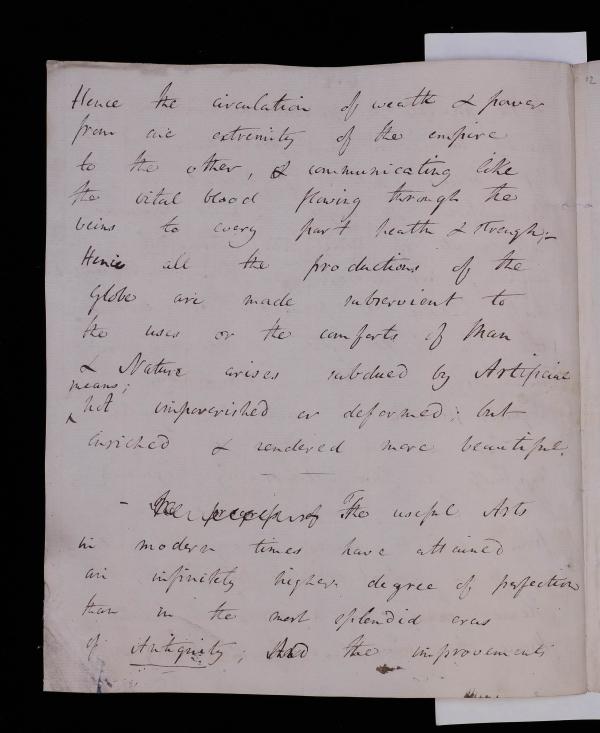 Hence the circulation of weath & power
from one extremity of the empire
to the other, & communicating like
the vital blood flowing through the
veins to every part health & strength;–
Hence all the productions of the
Globe are made subservient to
the uses or the comforts of Man
& Nature arises subdued by Artificial
means;
not impoverished or deformed; but
enriched & rendered more beautiful.
– The progress of The useful Arts
in modern times have attained
an infinitely higher degree of perfection
than in the most splendid eras
of Antiquity; And the improvements
12